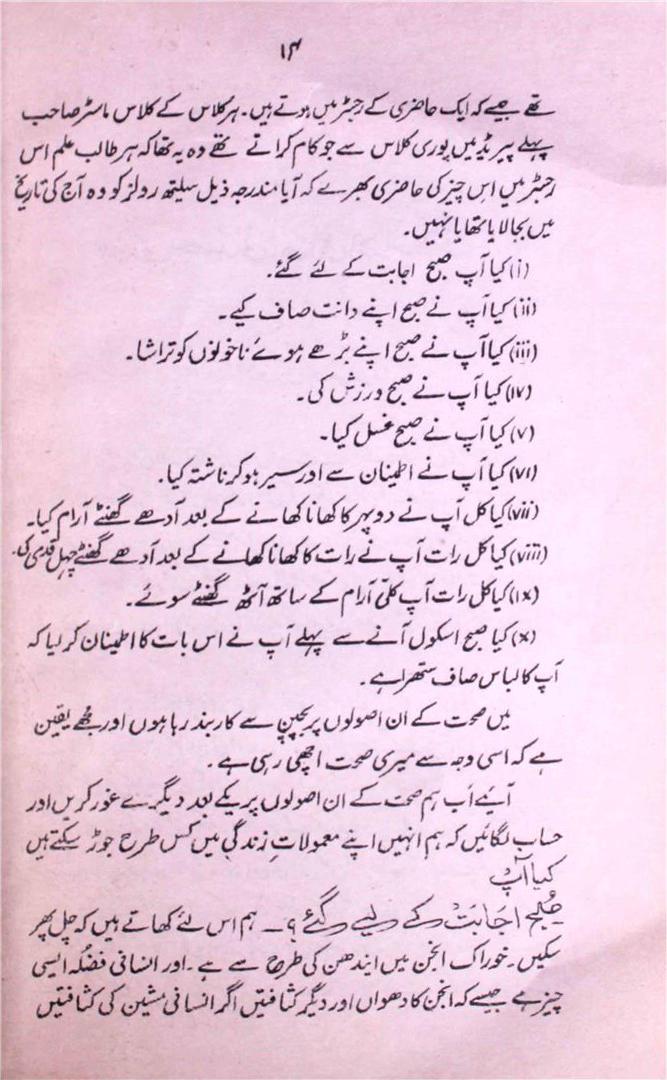 ۱۴
تھے جیسے کہ ایک حاضری کے رجسٹر میں ہوتے ہیں۔ ہر کلاس کے کلاس ماسٹر صاحب
پہلے پیریڈ میں پوری کلاس سے جو کام کراتے تھے وہ یہ تھا کہ ہر طالب علم اس
رجسٹر میں اس چیز کی حاضری بھرے کہ آیا مندرجہ ذیل ہیلتھ رولز کو وہ آج کی تاریخ
میں بجا لایا تھا یا نہیں۔
(i) کیا آپ صبح اجابت کے لئے گئے۔
(ii) کیا آپ نے صبح اپنے دانت صاف کیے۔
(iii) کیا آپ نے صبح اپنے بڑھے ہوئے ناخونوں کو تراشا۔
(iv) کیا آپ نے صبح ورزش کی۔
(v) کیا آپ نے صبح غسل کیا۔
(vi) کیا آپ نے اطمینان سے اور سیر ہو کر ناشتہ کیا۔
(vii) کیا کل آپ نے دوپہر کا کھانا کھانے کے بعد آدھے گھنٹے آرام کیا۔
(viii) کیا کل رات آپ نے رات کا کھانا کھانے کے بعد آدھے گھنٹے چہل قدمی کی۔
(ix) کیا کل رات آپ کلّی آرام کے ساتھ آٹھ گھنٹے سوئے۔
(x) کیا صبح اسکول آنے سے پہلے آپ نے اس بات کا اطمینان کر لیا کہ
آپ کا لباس صاف ستھرا ہے۔
میں صحت کے ان اصولوں پر بچپن سے کاربند رہا ہوں اور مجھے یقین
ہے کہ اسی وجہ سے میری صحت اچھی رہی ہے۔
آئیے اب ہم صحت کے ان اصولوں پر یکے بعد دیگرے غور کریں اور
حساب لگائیں کہ ہم انہیں اپنے معمولاتِ زندگی میں کس طرح جوڑ سکتے ہیں
کیا آپ
صبح اجابت کے لیے گئے؟ ـ ہم اس لئے کھاتے ہیں کہ چل پھر
سکیں۔ خوراک انجن میں ایندھن کی طرح سے ہے۔ اور انسانی فضلہ ایسی
چیز ہے جیسے کہ انجن کا دھواں اور دیگر کثافتیں اگر انسانی مشین کی کثافتیں